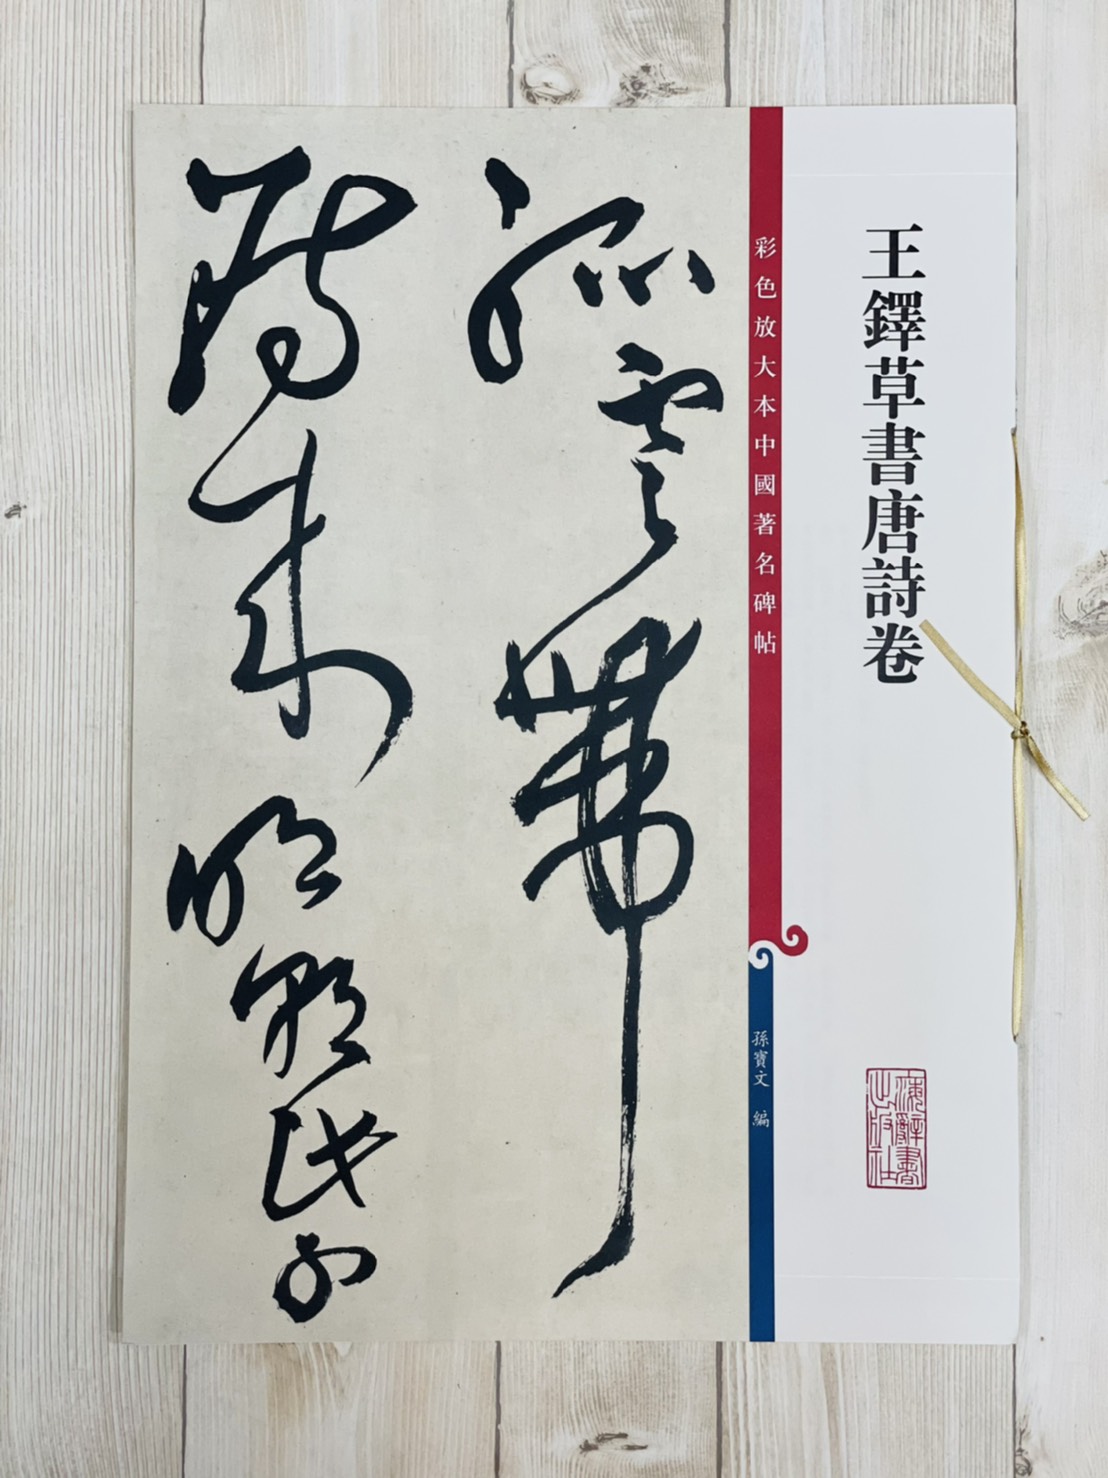 王鐸草書唐詩卷
上海辭書
出版社
彩色放大本中國著名碑帖
孫寶文 編
孤雲帶
鴈來明朝